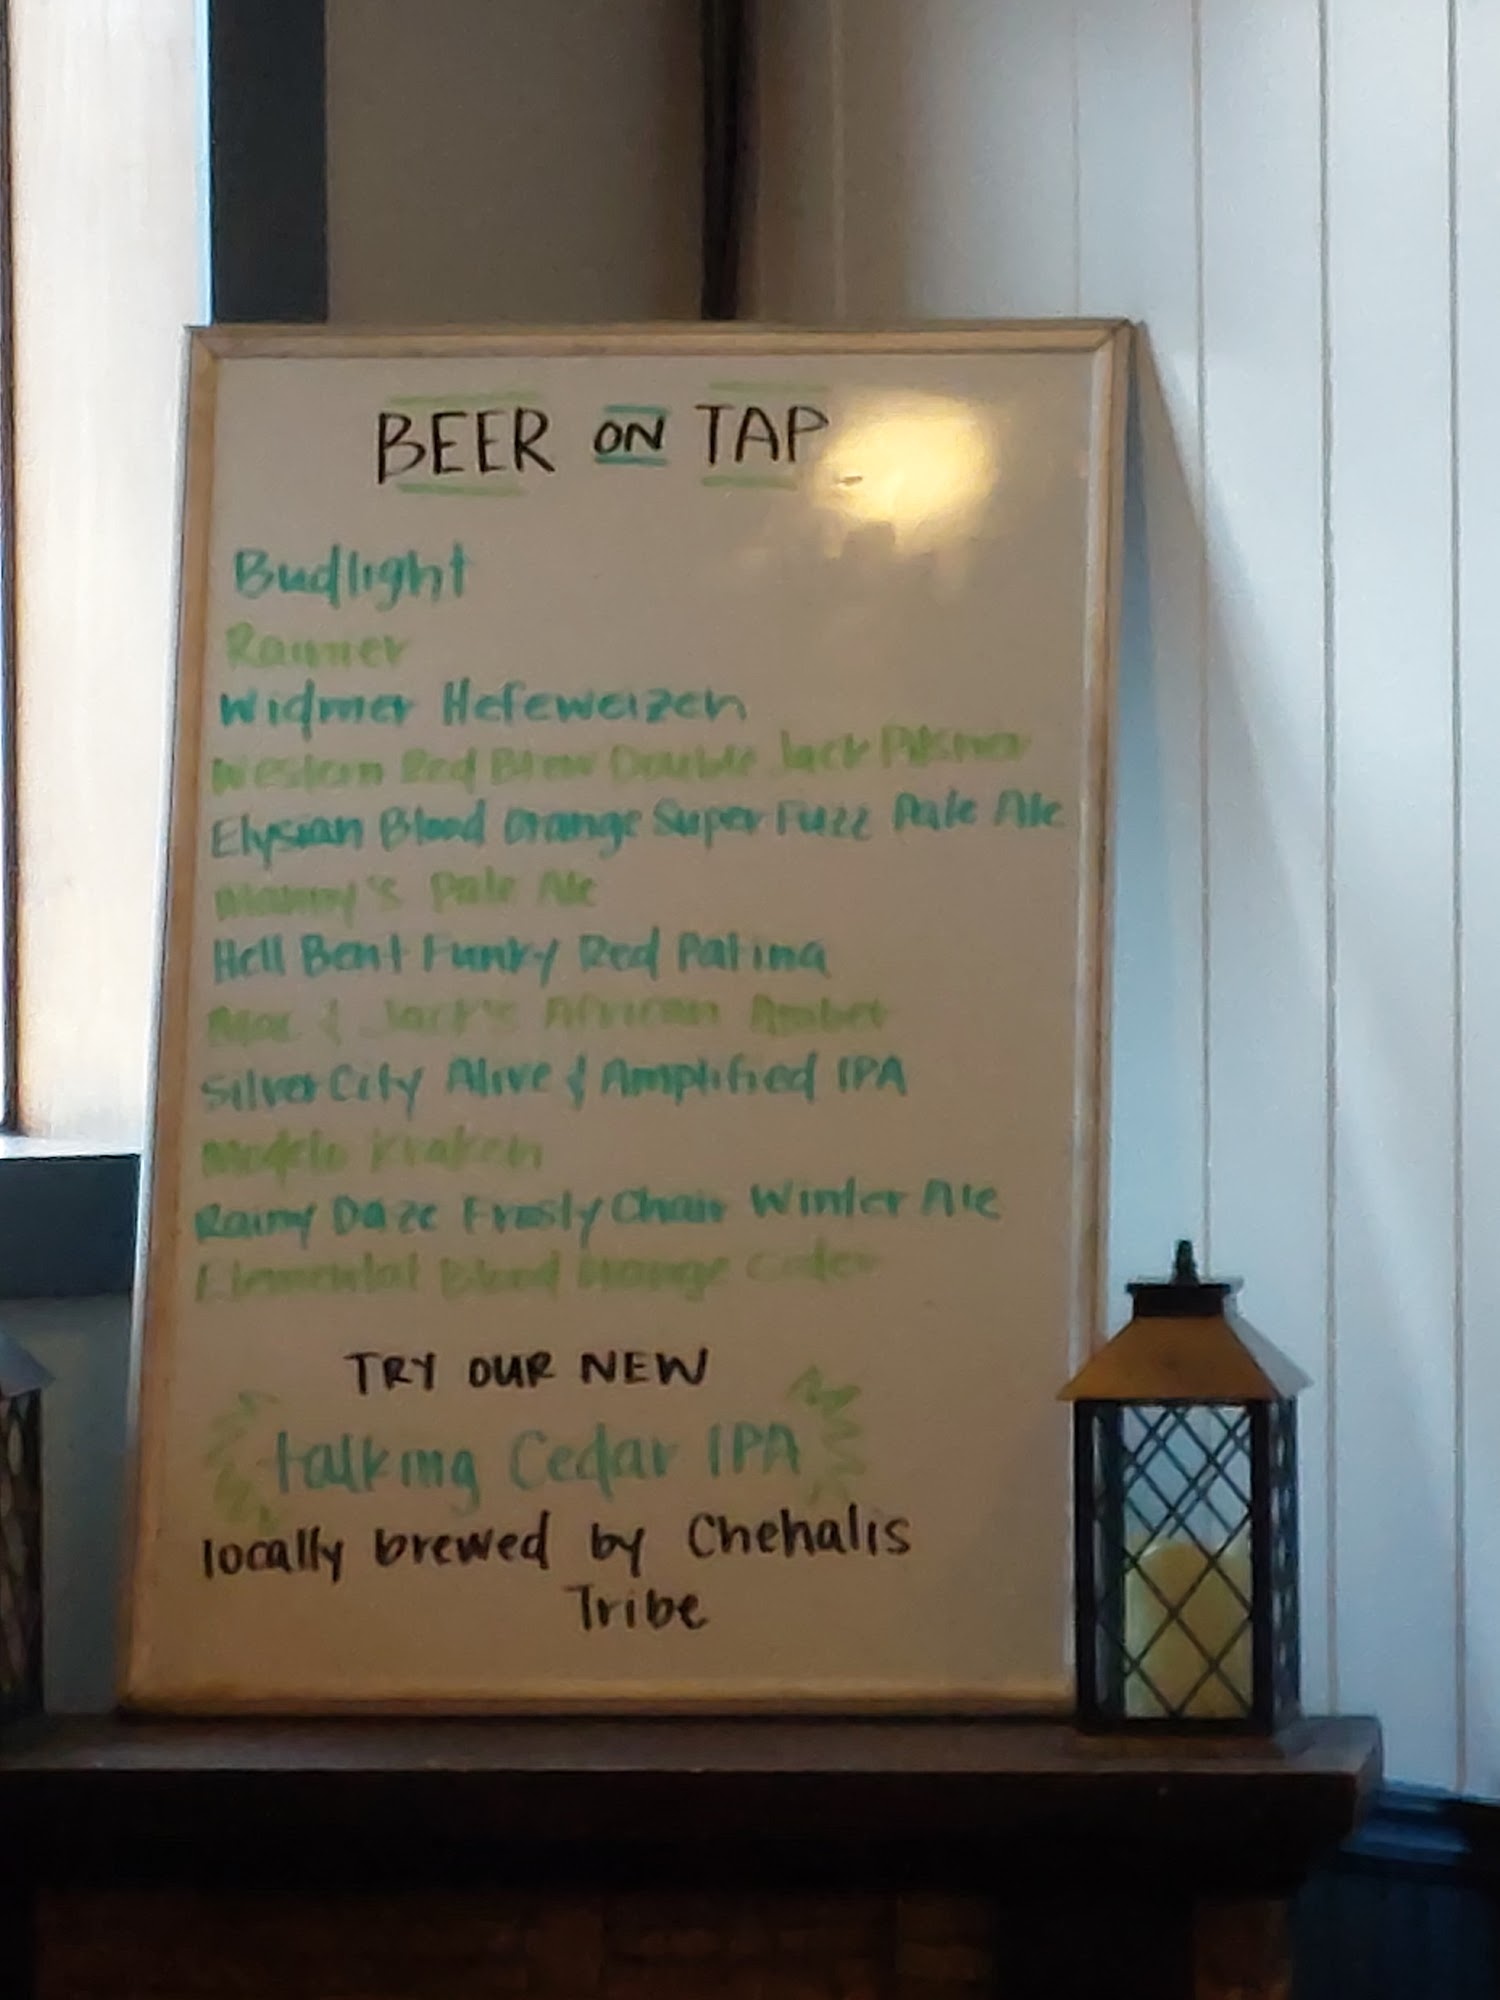 BEER ON TAP
Budlight
Rainier
Widmer Hefeweizen
Western Red Brew Double Jack Pilsner
Elysian Blood Orange Super Fuzz Pale Ale
Manny's Pale Ale
Hell Bent Funky Red Patina
Mac & Jack's African Amber
Silver City Alive & Amplified IPA
Modelo
Rainy Daze Frosty Chair Winter Ale
Elemental Blood Orange Cider
TRY OUR NEW
talking Cedar IPA
locally brewed by Chehalis
Tribe